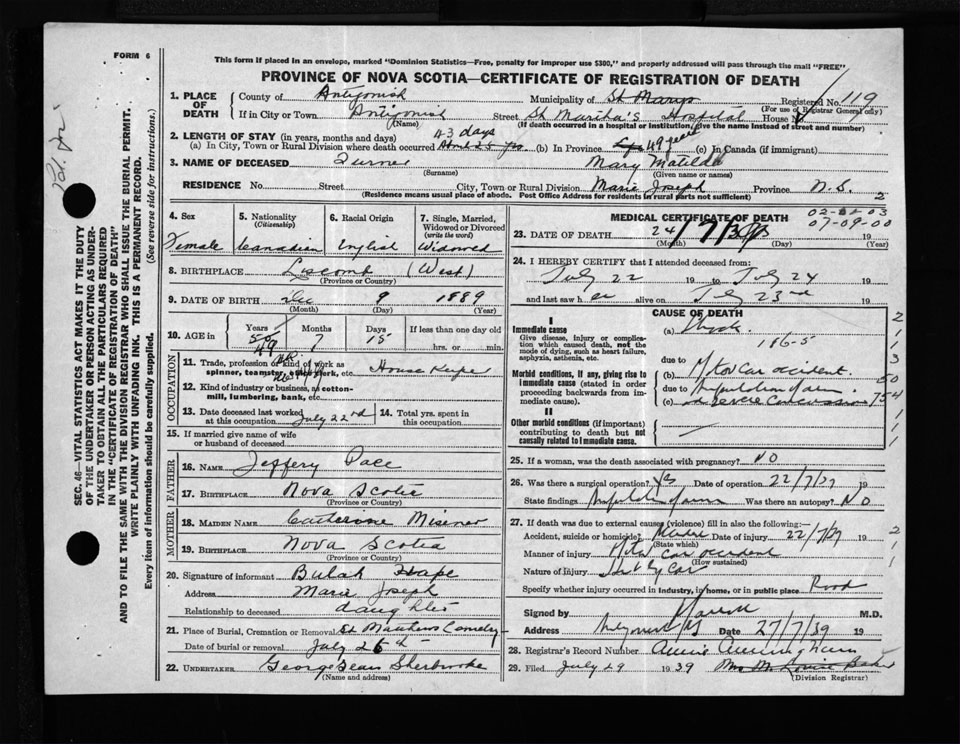 FORM 6
This form if placed in an envelope, marked "Dominion Statistics—Free, penalty for improper use $300," and properly addressed will pass through the mail "FREE".
PROVINCE OF NOVA SCOTIA—CERTIFICATE OF REGISTRATION OF DEATH
SEC. 46—VITAL STATISTICS ACT MAKES IT THE DUTY
OF THE UNDERTAKER OR PERSON ACTING AS UNDER-
TAKER TO OBTAIN ALL THE PARTICULARS REQUIRED
IN THE "CERTIFICATE OF REGISTRATION OF DEATH"
AND TO FILE THE SAME WITH THE DIVISION REGISTRAR WHO SHALL ISSUE THE BURIAL PERMIT.
WRITE PLAINLY WITH UNFADING INK. THIS IS A PERMANENT RECORD.
Every item of information should be carefully supplied. (See reverse side for instructions.)
1. PLACE OF DEATH County of Antigonish Municipality of St Marys Registered No. 119
(For use of Registrar General only)
If in City or Town Antigonish Street St Martha's Hospital House No
(Name) (If death occurred in a hospital or institution, give the name instead of street and number)
2. LENGTH OF STAY (in years, months and days) 3 days
(a) In City, Town or Rural Division where death occurred (b) In Province 49 years (c) In Canada (if immigrant)
3. NAME OF DECEASED Turner Mary Matilda
(Surname) (Given name or names)
RESIDENCE No. Street City, Town or Rural Division Marie Joseph Province N.S. 2
(Residence means usual place of abode. Post Office Address for residents in rural parts not sufficient)
4. Sex 5. Nationality (Citizenship) 6. Racial Origin 7. Single, Married, Widowed or Divorced (write the word)
Female Canadian English Widowed
8. BIRTHPLACE Liscomb (West)
(Province or Country)
9. DATE OF BIRTH Dec 9 1889
(Month) (Day) (Year)
10. AGE in Years Months Days If less than one day old
49 7 15 hrs. or min.
OCCUPATION
11. Trade, profession or kind of work as spinner, teamster, office clerk, etc. House Keeper
12. Kind of industry or business, as cotton-mill, lumbering, bank, etc.
13. Date deceased last worked at this occupation July 22nd 14. Total yrs. spent in this occupation
15. If married give name of wife or husband of deceased
FATHER
16. NAME Jeffery Pace
17. BIRTHPLACE Nova Scotia
(Province or Country)
MOTHER
18. MAIDEN NAME Catherine Misener
19. BIRTHPLACE Nova Scotia
(Province or Country)
20. Signature of informant Bulah Hape
Address Marie Joseph
Relationship to deceased daughter
21. Place of Burial, Cremation or Removal St Matthews Cemetery
Date of burial or removal July 26th
22. UNDERTAKER George Dean Sherbrooke
(Name and address)
MEDICAL CERTIFICATE OF DEATH
02-02-03
07-09-00
23. DATE OF DEATH 24/7/39 19
(Month) (Day) (Year)
24. I HEREBY CERTIFY that I attended deceased from:
July 22 19 to July 24 19
and last saw her alive on July 23rd 19
CAUSE OF DEATH
I
Immediate cause
Give disease, injury or complication which caused death, not the mode of dying, such as heart failure, asphyxia, asthenia, etc.
(a) Shock
186-5
due to
Morbid conditions, if any, giving rise to immediate cause (stated in order proceeding backwards from immediate cause).
(b) Motor Car accident.
due to
(c) severe Concussion
II
Other morbid conditions (if important) contributing to death but not causally related to immediate cause.
25. If a woman, was the death associated with pregnancy? NO
26. Was there a surgical operation? Yes Date of operation 22/7/39 19
State findings Was there an autopsy? NO
27. If death was due to external causes (violence) fill in also the following:—
Accident, suicide or homicide? Date of injury 22/7/39 19
(State which)
Manner of injury Motor car accident
(How sustained)
Nature of injury Hit by Car
Specify whether injury occurred in industry, in home, or in public place Road
Signed by M.D.
Address Date 27/7/39 19
28. Registrar's Record Number Annie Cunningham
29. Filed July 29 1939 Mrs M Louise Baker
(Division Registrar)